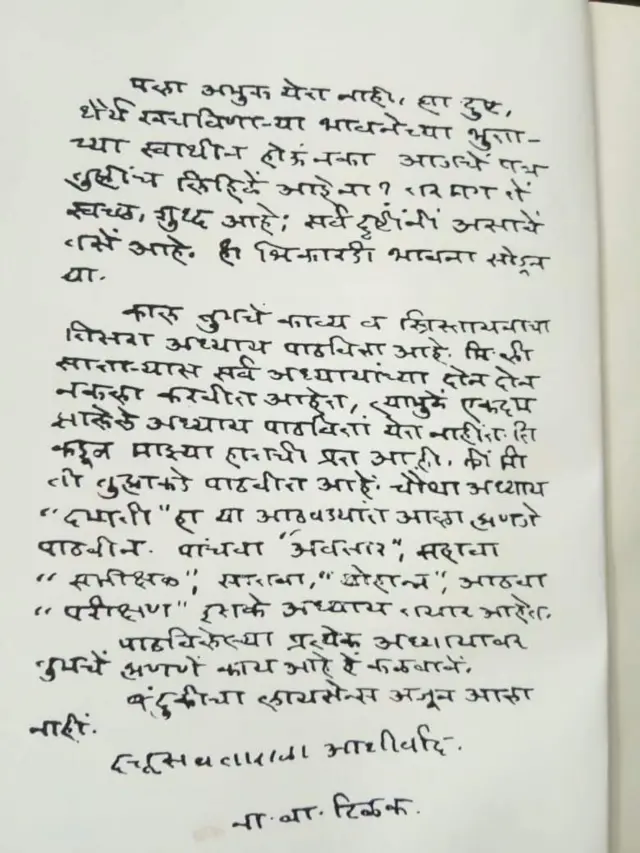 मला अमुक येत नाही, हा दुष्ट,
धैर्य खचविणाऱ्या भावनेच्या भुता-
च्या स्वाधीन होऊं नका आजचें पत्र
तुम्हींच लिहिलें आहेना? तर मग तें
स्वच्छ, शुध्द आहे; सर्व दृष्टींनीं असावें
तसें आहे. ही भिकारडी भावना सोडून
द्या.
काल तुमचें काव्य व ख्रिस्तायनाचा
तिसरा अध्याय पाठविला आहे. मि
साताऱ्यास सर्व अध्यायांच्या दोन दोन
नकला करवीत आहेत, त्यामुळें एकदम
सगळे अध्याय पाठवितां येत नाहींत. ति
कडून माझ्या हातची प्रत आली, कीं मी
ती तुह्माकडे पाठवीत आहें. चौथा अध्याय
"दमाती" हा या आठवड्यांत आला म्हणजे
पाठवीन. पांचवा "अवतार", सहावा
"समीक्षक", सातवा, "योहान्न", आठवा
"परीक्षण" इतके अध्याय तयार आहेत.
पाठविलेल्या प्रत्येक अध्यायावर
तुमचें म्हणणें काय आहे हें कळवावें.
बंदुकीचा लायसेन्स अजून आला
नाहीं.
दत्तूस व ताराला आशीर्वाद.
ना. वा. टिळक.